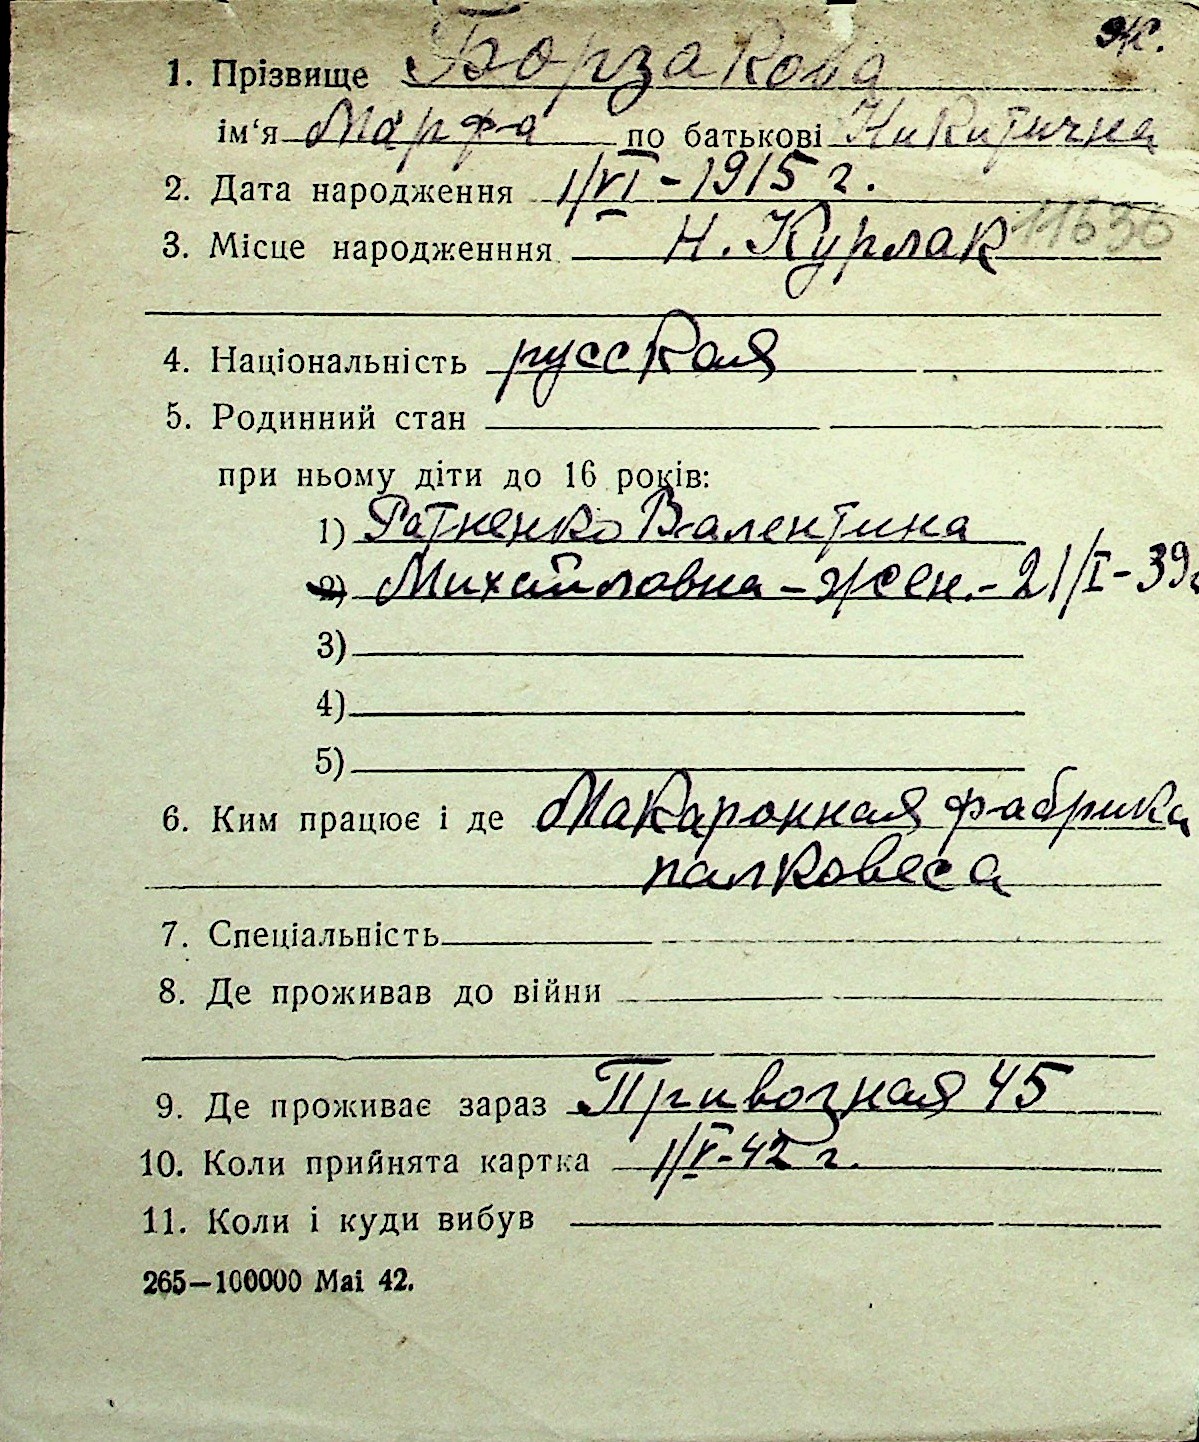 ж.
1. Прізвище Борзакова
ім‘я Марфа по батькові Никитична
2. Дата народження 1/VI - 1915 г.
3. Місце народженння Н. Курлак 11636
4. Національність русская
5. Родинний стан
при ньому діти до 16 років:
1) Ратненко Валентина
2) Михайловна - жен. - 21/I - 39г
3)
4)
5)
6. Ким працює і де Макаронная фабрика
палковеса
7. Спеціальність
8. Де проживав до війни
9. Де проживає зараз Привозная 45
10. Коли прийнята картка 1/V - 42 г.
11. Коли і куди вибув
265—100000 Mai 42.